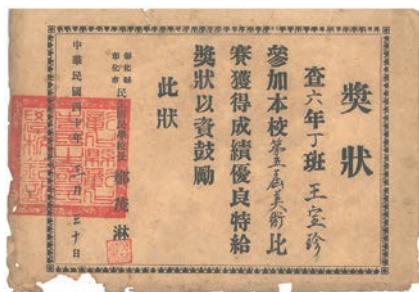 獎狀
查六年丁班王宝珍
參加本校第五屆美術比
賽獲得成績優良特給
獎狀以資鼓勵
此狀
彰化縣
彰化市
民
學校長
鄭茂淋
中華民國四十年
月三十日